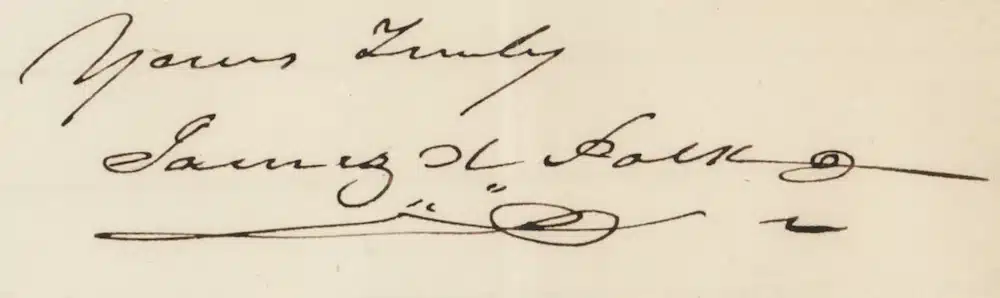 Yours Truly
James K Polk